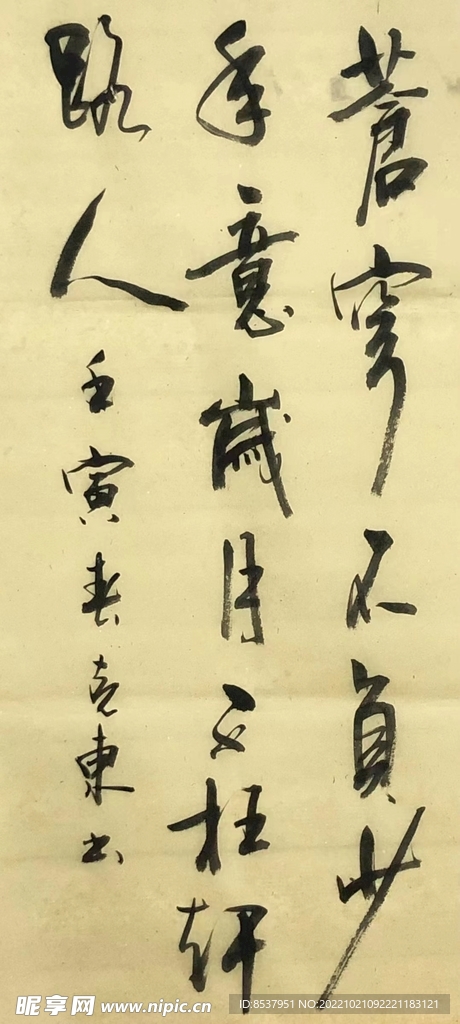 苍穹不负少
年意岁月不枉赶
路人
壬寅春克東书
昵享网 www.nipic.cn
ID:8537951 NO:20221021092221183121